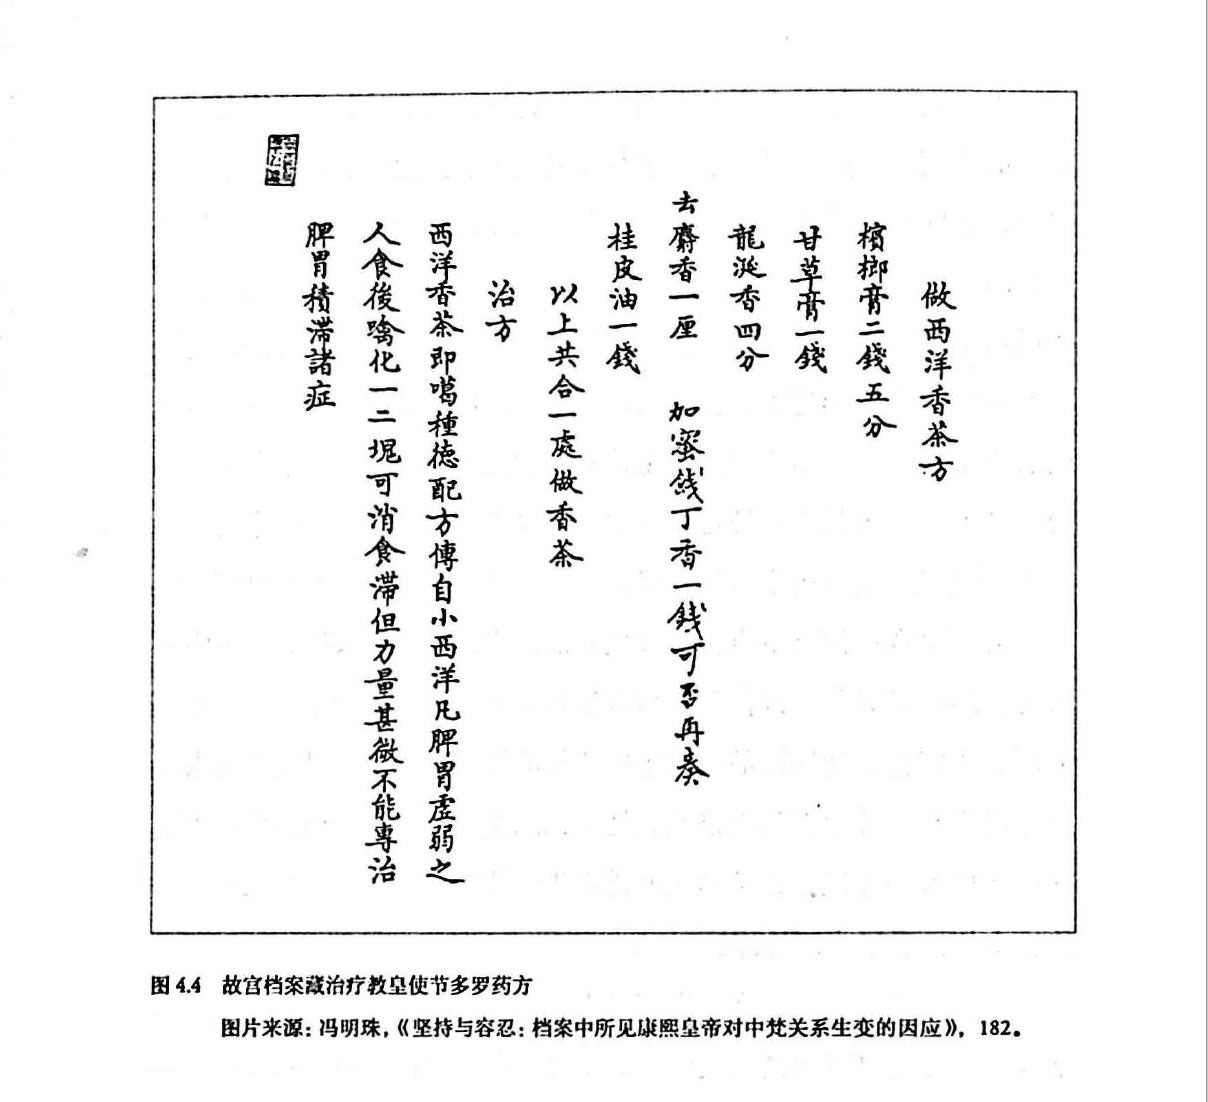 做西洋香茶方
檳榔膏二錢五分
甘草膏一錢
龍涎香四分
去麝香一厘 加蜜餞丁香一錢可否再奏
桂皮油一錢
以上共合一處做香茶
治方
西洋香茶即噶種德配方傳自小西洋凡脾胃虛弱之
人食後噙化一二塊可消食滯但力量甚微不能專治
脾胃積滯諸症
图 4.4 故宫档案藏治疗教皇使节多罗药方
图片来源：冯明珠，《坚持与容忍：档案中所见康熙皇帝对中梵关系生变的因应》，182。